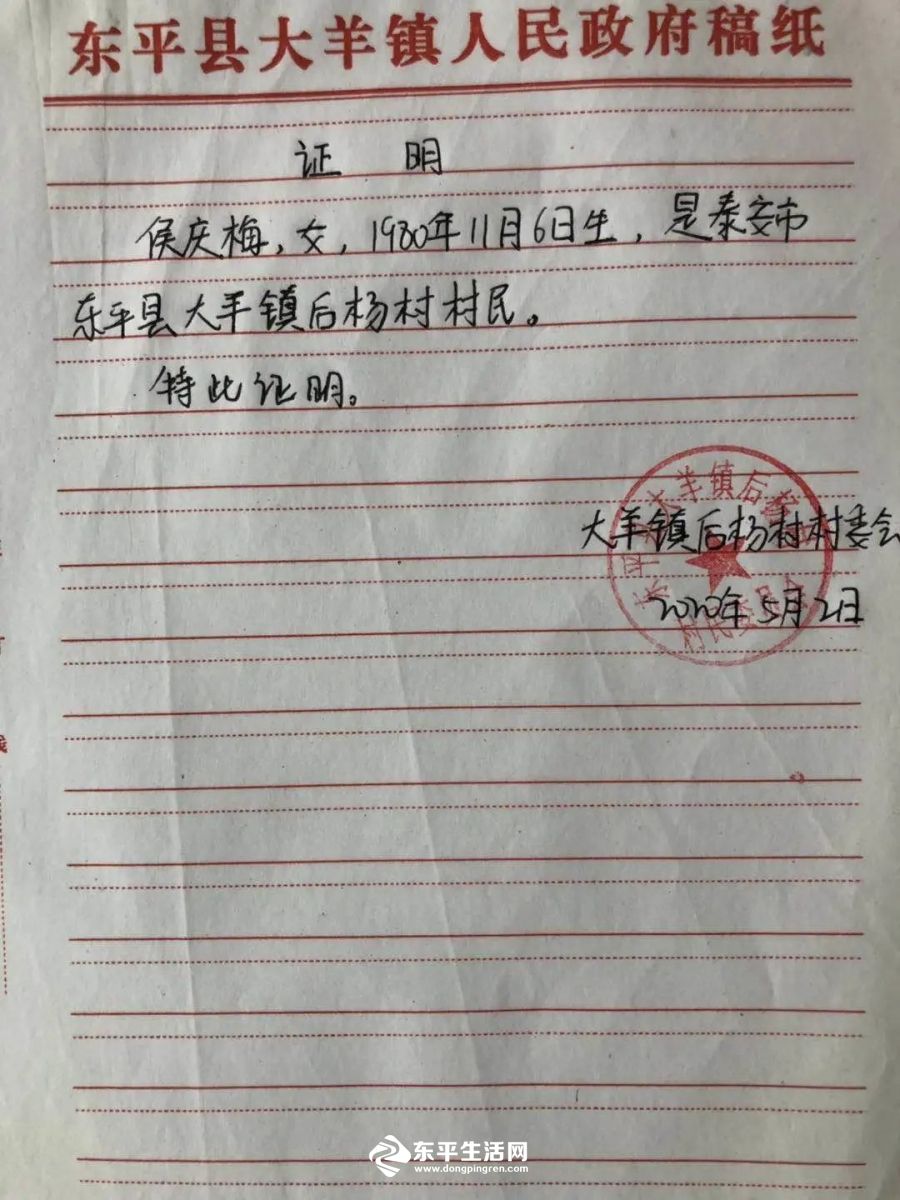 东平县大羊镇人民政府稿纸
证 明
侯庆梅,女,1980年11月6日生,是泰安市
东平县大羊镇后杨村村民。
特此证明。
大羊镇后杨村村委会
2020年5月2日
东平县大羊镇后杨村
村民委员会
东平生活网
www.dongpingren.com